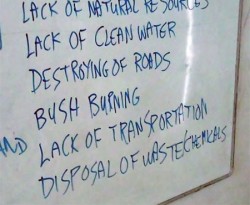 LACK OF NATURAL RESOURCES
LACK OF CLEAN WATER
DESTROYING OF ROADS
BUSH BURNING
AND LACK OF TRANSPORTATION
DISPOSAL OF WASTE/CHEMICALS